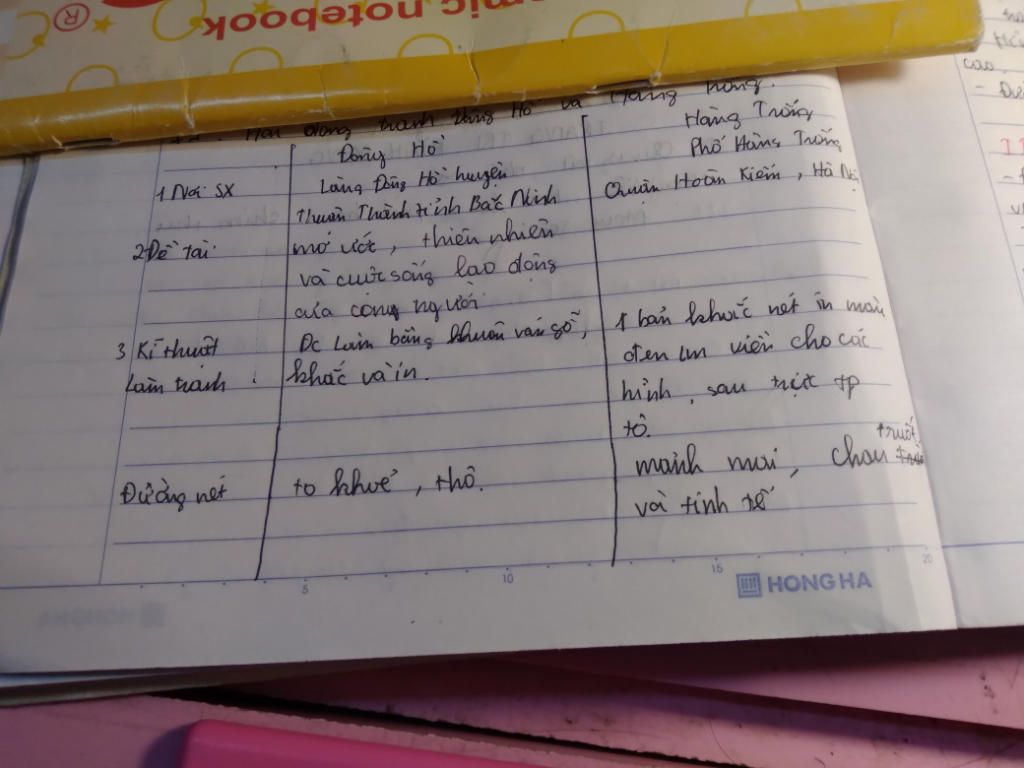 emic notebook
®
Hai dòng tranh Đông Hồ và Hàng Trống.
Đông Hồ
Hàng Trống
1 Nơi SX
Làng Đông Hồ huyện
Thuận Thành tỉnh Bắc Ninh
Phố Hàng Trống
Quận Hoàn Kiếm, Hà Nội
2 Đề tài
mơ ước, thiên nhiên
và cuộc sống lao động
của công người
3 Kĩ thuật
làm tranh
Đc làm bằng khuôn ván gỗ,
khắc và in.
1 bản khắc nét in màu
đen viền cho các
hình, sau trực tp
tô.
Đường nét
to khoẻ, thô.
mảnh mai, chau
truốt
và tinh tế
5
10
15
20
HONG HA
cao